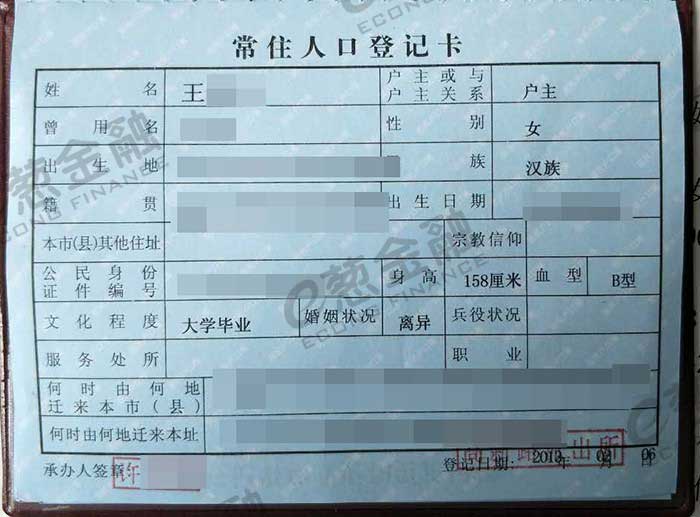 常住人口登记卡
姓名 王 户主或与户主关系 户主
曾用名 性别 女
出生地 族 汉族
籍贯 出生日期
本市(县)其他住址 宗教信仰
公民身份证件编号 身高 158厘米 血型 B型
文化程度 大学毕业 婚姻状况 离异 兵役状况
服务处所 职业
何时由何地迁来本市(县)
何时由何地迁来本址
承办人签章: 许 出所
登记日期: 2013 年 02 月 06 日
e葱金融
ECONG FINANCE